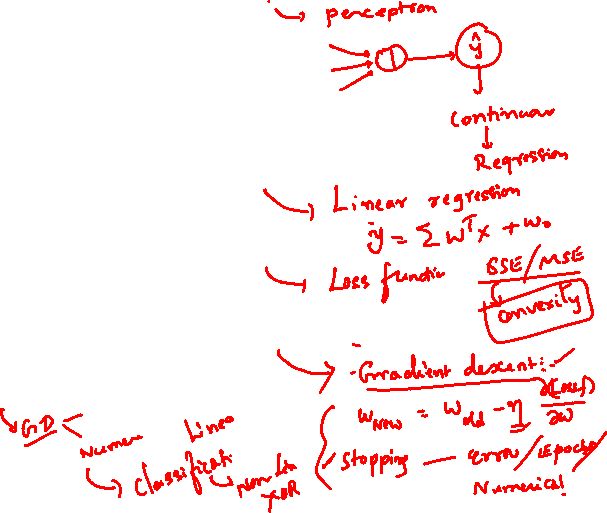 perception
ŷ
Continuous
Regression
Linear regression
ŷ = Σ wᵀx + w₀
Loss functio SSE/MSE
Convexity
Gradient descent:-
w_new = w_old - η
∂w
Stopping — error / Epochs
Numerical
GD
Numer
Linea
Classificati
Non Lin
XOR